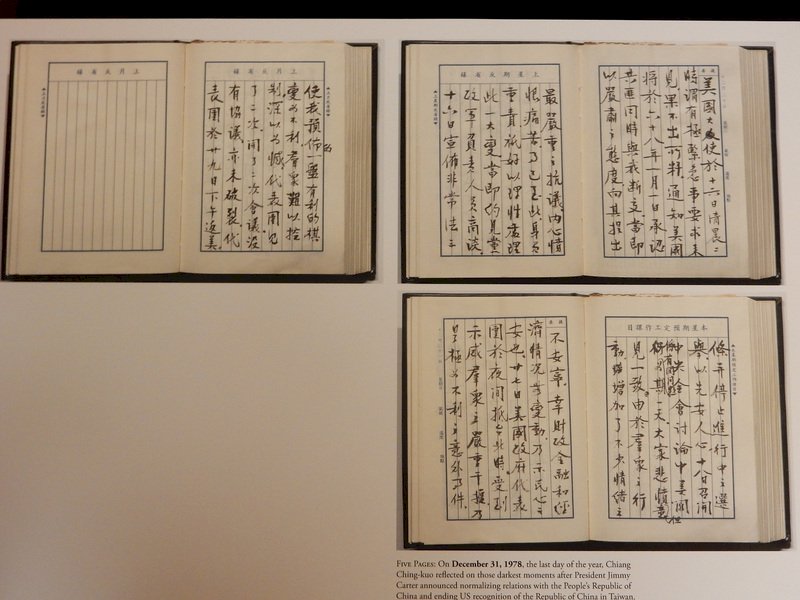 美國大使於十六日清晨二
時謂有極緊急事要求來
見,果不出所料,通知美國
將於六十八年一月一日承認
共匪同時與我斷交,當即
以嚴肅之態度向其提出
上星期反省錄
最嚴重之抗議,內心憤
恨痛苦乃已至此,身負
重責祇好以理性處理
此一大變,當即約見黨
政軍負責人員商談,
十六日宣佈非常法之
本星期預定工作課目
條弁停止進行中之選
舉,以先安人心,十八日召開
中央全會討論中美關
為期一天,大家悲憤,意
見一致,由於羣眾之行
動,雖增加了不少情緒之
不安寧,幸財政金融和經
濟情況無變動,乃示民心之
安也,廿七日美國政府代表
團於夜間抵台北時,受到
示威羣眾之嚴重干擾,乃
是極為不利之意外事件.
上月反省錄
使我預佈的一盤有利的棋
變為不利,羣眾難以控
制,深以為憾,代表團見
了二次,開了二次會議,沒
有協議,亦未破裂,代
表團於廿九日下午返美.
上月反省錄
FIVE PAGES: On December 31, 1978, the last day of the year, Chiang
Ching-kuo reflected on those darkest moments after President Jimmy
Carter announced normalizing relations with the People's Republic of
China and ending US recognition of the Republic of China in Taiwan.